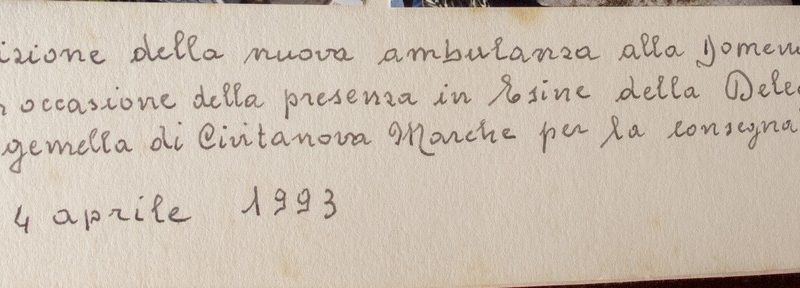 izione della nuova ambulanza alla Domeni
occasione della presenza in Esine della Dele
gemella di Civitanova Marche per la consegna
4 aprile 1993